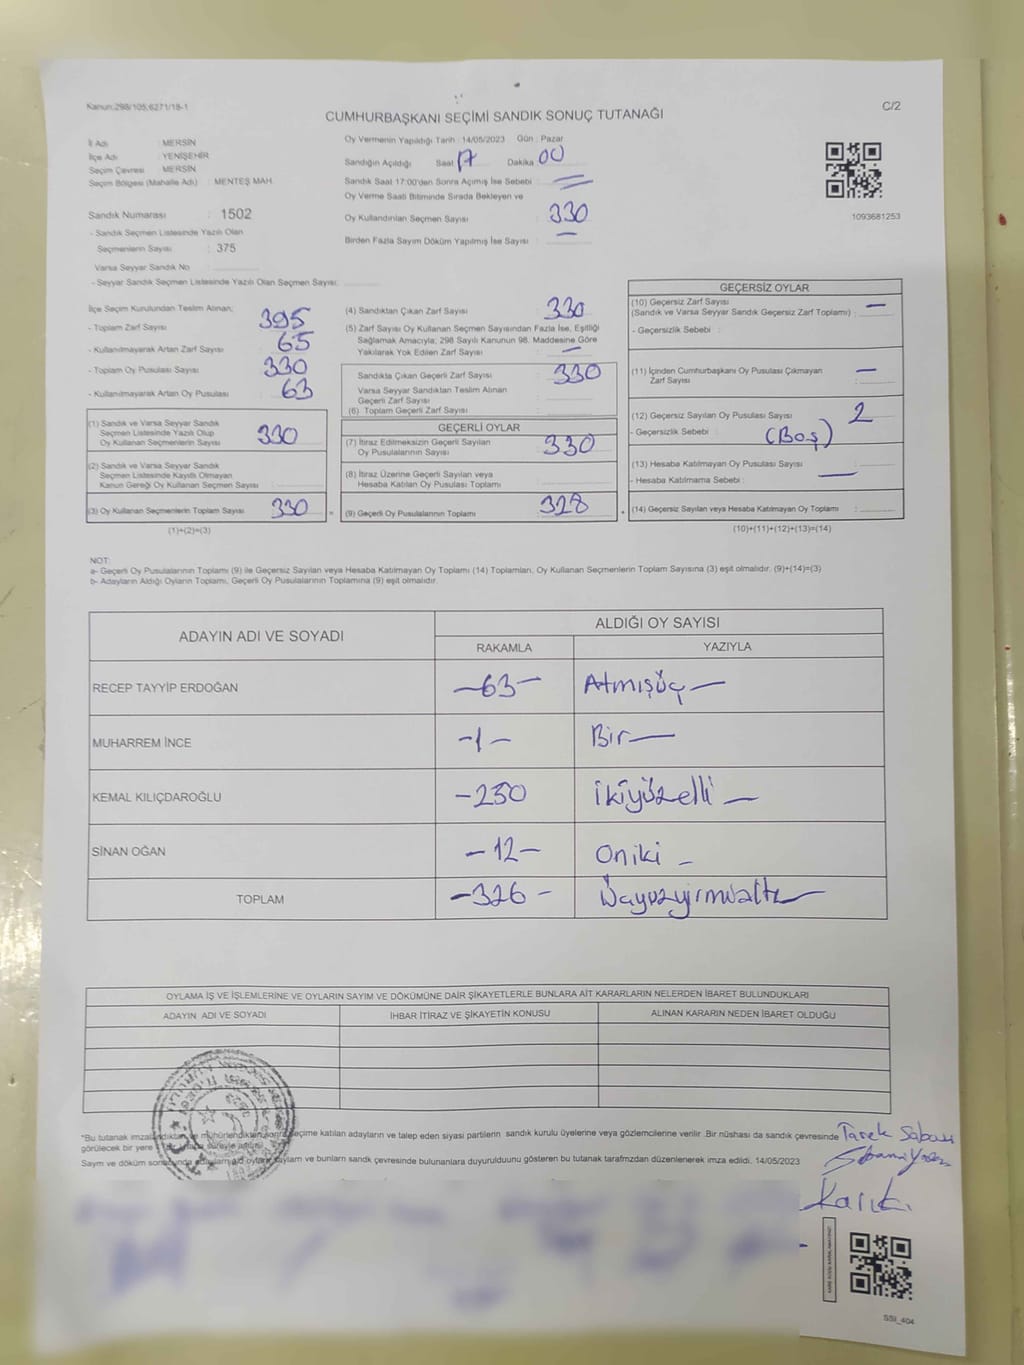 Kanun:298/105,6271/18-1
C/2
CUMHURBAŞKANI SEÇİMİ SANDIK SONUÇ TUTANAĞI
İl Adı : MERSİN
İlçe Adı : YENİŞEHİR
Seçim Çevresi : MERSİN
Seçim Bölgesi (Mahalle Adı) : MENTEŞ MAH.
Sandık Numarası : 1502
- Sandık Seçmen Listesinde Yazılı Olan
Seçmenlerin Sayısı : 375
Varsa Seyyar Sandık No :
- Seyyar Sandık Seçmen Listesinde Yazılı Olan Seçmen Sayısı:
Oy Vermenin Yapıldığı Tarih : 14/05/2023 Gün : Pazar
Sandığın Açıldığı Saat 17 Dakika 00
Sandık Saat 17:00'den Sonra Açımış İse Sebebi :
Oy Verme Saati Bitiminde Sırada Bekleyen ve
Oy Kullandırılan Seçmen Sayısı : 330
Birden Fazla Sayım Döküm Yapılmış İse Sayısı :
1093681253
İlçe Seçim Kurulundan Teslim Alınan;
- Toplam Zarf Sayısı : 395
- Kullanılmayarak Artan Zarf Sayısı : 65
- Toplam Oy Pusulası Sayısı : 330
- Kullanılmayarak Artan Oy Pusulası : 63
(1) Sandık ve Varsa Seyyar Sandık
Seçmen Listesinde Yazılı Olup
Oy Kullanan Seçmenlerin Sayısı : 330
(2) Sandık ve Varsa Seyyar Sandık
Seçmen Listesinde Kayıtlı Olmayan
Kanun Gereği Oy Kullanan Seçmen Sayısı :
(3) Oy Kullanan Seçmenlerin Toplam Sayısı : 330
(1)+(2)=(3)
(4) Sandıktan Çıkan Zarf Sayısı : 330
(5) Zarf Sayısı Oy Kullanan Seçmen Sayısından Fazla İse, Eşitliği
Sağlamak Amacıyla, 298 Sayılı Kanunun 98. Maddesine Göre
Yakılarak Yok Edilen Zarf Sayısı :
Sandıkta Çıkan Geçerli Zarf Sayısı : 330
Varsa Seyyar Sandıktan Teslim Alınan
Geçerli Zarf Sayısı :
(6) Toplam Geçerli Zarf Sayısı :
GEÇERLİ OYLAR
(7) İtiraz Edilmeksizin Geçerli Sayılan
Oy Pusulalarının Sayısı : 330
(8) İtiraz Üzerine Geçerli Sayılan veya
Hesaba Katılan Oy Pusulası Toplamı :
(9) Geçerli Oy Pusulalarının Toplamı : 328
GEÇERSİZ OYLAR
(10) Geçersiz Zarf Sayısı
(Sandık ve Varsa Seyyar Sandık Geçersiz Zarf Toplamı) : —
- Geçersizlik Sebebi :
(11) İçinden Cumhurbaşkanı Oy Pusulası Çıkmayan
Zarf Sayısı : —
(12) Geçersiz Sayılan Oy Pusulası Sayısı : 2
- Geçersizlik Sebebi : (Boş)
(13) Hesaba Katılmayan Oy Pusulası Sayısı :
- Hesaba Katılmama Sebebi :
(14) Geçersiz Sayılan veya Hesaba Katılmayan Oy Toplamı :
(10)+(11)+(12)+(13)=(14)
NOT:
a- Geçerli Oy Pusulalarının Toplamı (9) ile Geçersiz Sayılan veya Hesaba Katılmayan Oy Toplamı (14) Toplamları, Oy Kullanan Seçmenlerin Toplam Sayısına (3) eşit olmalıdır. (9)+(14)=(3)
b- Adayların Aldığı Oyların Toplamı, Geçerli Oy Pusulalarının Toplamına (9) eşit olmalıdır.
ADAYIN ADI VE SOYADI
ALDIĞI OY SAYISI
RAKAMLA YAZIYLA
RECEP TAYYİP ERDOĞAN —63— Atmışüç—
MUHARREM İNCE -1- Bir—
KEMAL KILIÇDAROĞLU -250 ikiyüzelli —
SİNAN OĞAN -12- Oniki -
TOPLAM -326-
OYLAMA İŞ VE İŞLEMLERİNE VE OYLARIN SAYIM VE DÖKÜMÜNE DAİR ŞİKAYETLERLE BUNLARA AİT KARARLARIN NELERDEN İBARET BULUNDUKLARI
ADAYIN ADI VE SOYADI İHBAR İTİRAZ VE ŞİKAYETİN KONUSU ALINAN KARARIN NEDEN İBARET OLDUĞU
*Bu tutanak imzalandıktan ve mühürlendikten sonra seçime katılan adayların ve talep eden siyasi partilerin sandık kurulu üyelerine veya gözlemcilerine verilir. Bir nüshası da sandık çevresinde
görülecek bir yere
Sayım ve döküm sonucunda bunların sandık çevresinde bulunanlara duyurulduunu gösteren bu tutanak tarafımızdan düzenlenerek imza edildi. 14/05/2023
SSI_404